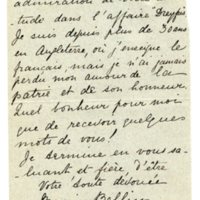 admiration de votre
tude dans l'affaire Dreyfus
Je suis depuis plus de 30 ans
en Angleterre, où j'enseigne le
français, mais je n'ai jamais
perdu mon amour de la
patrie et de son honneur.
Quel bonheur pour moi
que de recevoir quelques
mots de vous!
Je termine en vous sa-
luant et fière d'être
Votre toute dévouée